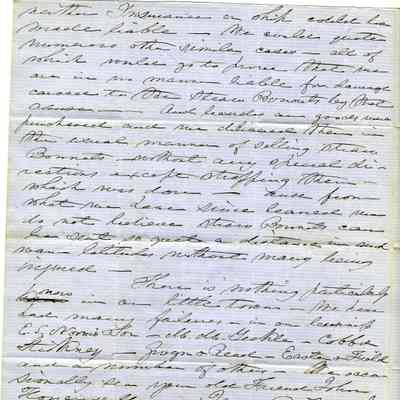 neither Insurance or Ship could be
made liable — We could quote
numerous other similar cases — all of
which would go to prove that we
are in no manner liable for damage
caused to the Straw Bonnets by that
— And besides our goods were
purchased and we ordered them in
the usual manner of selling Straw
Bonnets without any special di-
rections except strapping them —
which was done — and from
what we have since learned we
do not believe Straw Bonnets can
be sent so great a distance in and
warm latitudes without many being
injured —
There is nothing particularly
new in our little town — We have
had many failures in our business
E. C. Norris & Son — Cobbs
— & Reed — & Field
and a number of others — We occa-
sionally see your old friend John